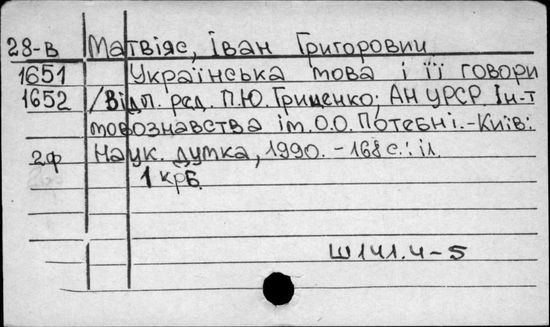 28-в Матвіяс, Іван Григорович
1651 Українська мова і її говори
1652 /Відп. ред. П.Ю. Гриценко; АН УРСР. Ін-т
мовознавства ім. О.О. Потебні.-Київ:
2ф Наук. думка, 1990. - 168 с.: іл.
1 крб.
Ш141.4-5